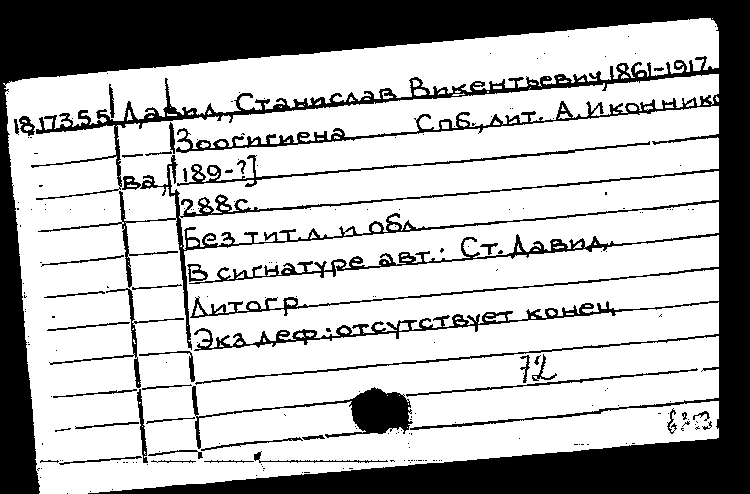 18.173.5.5 Давид, Станислав Викентьевич, 1861-1917.
Зоогигиена Спб., лит. А. Иконнико
ва, [189-?]
288с.
Без тит.л. и обл.
В сигнатуре авт.: Ст. Давид.
Литогр.
Экз деф.: отсутствует конец
72